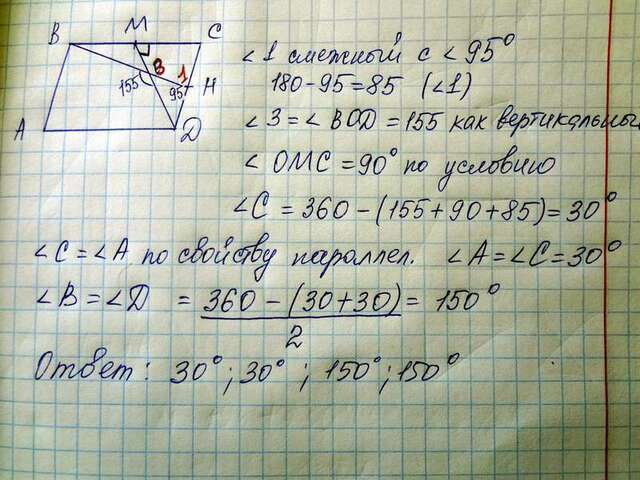 M
B C
3 1
155 95° H
A D
∠1 смежный с ∠95°
180-95=85 (∠1)
∠3=∠BOD=155 как вертикальны
∠OMC=90° по условию
∠C=360-(155+90+85)=30°
∠C=∠A по свойству пароллел. ∠A=∠C=30°
∠B=∠D = 360-(30+30) = 150°
2
Ответ: 30°; 30°; 150°; 150°